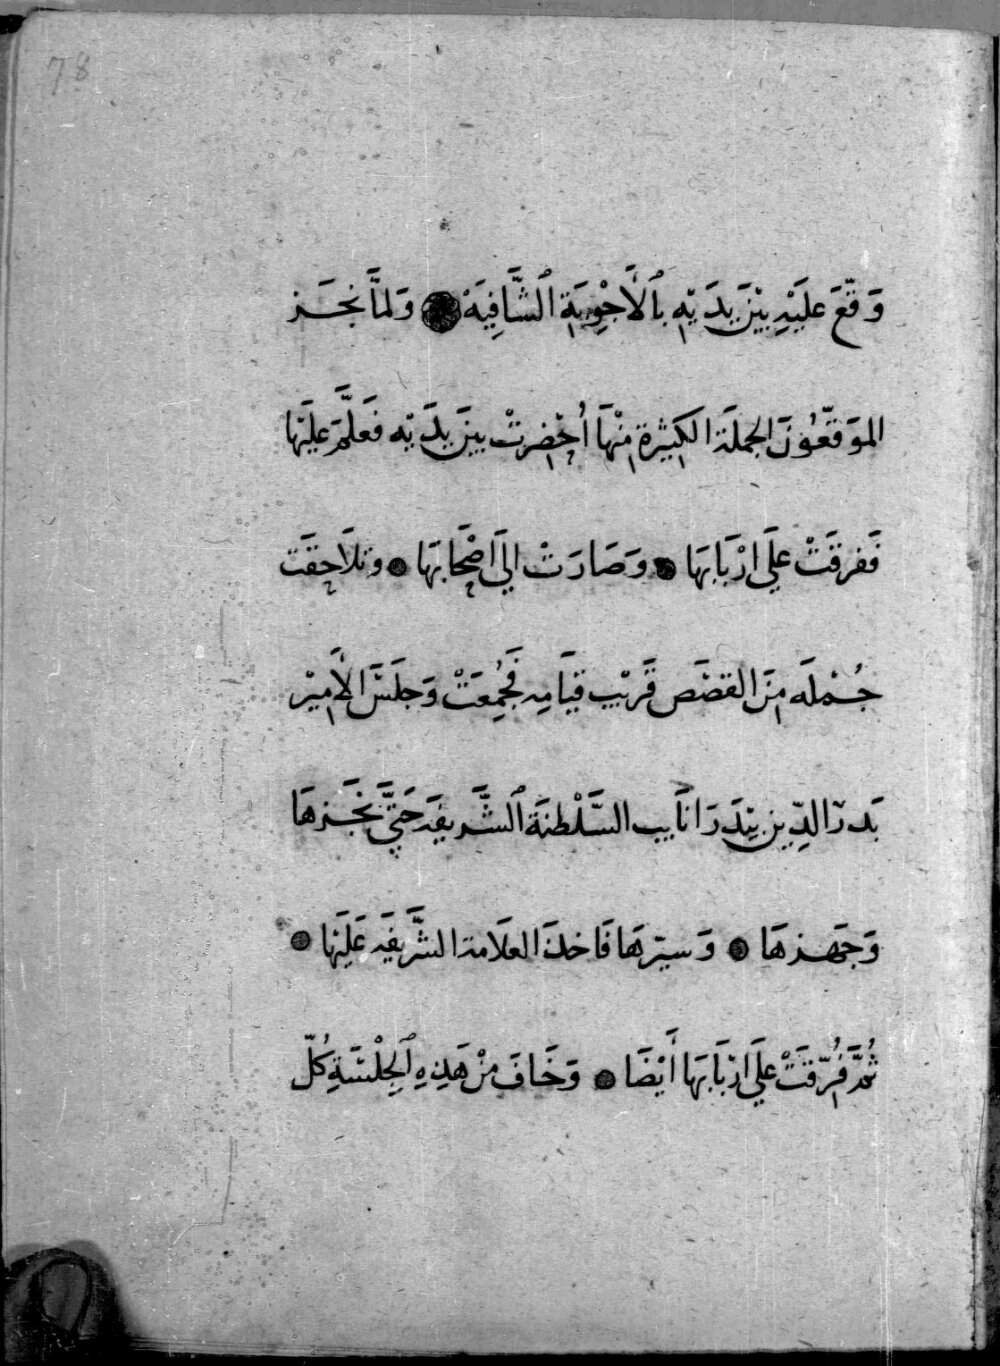 78
وَقَّعَ عَلَيْهِ بَيْنَ يَدَيْهِ بِٱلْأَجْوِبَةِ ٱلشَّافِيَةْ ● وَلمَّا نجَز
الموَقِّعُونَ الجملَة الكَثِيرَة مِنْهَا أُحْضِرتْ بينَ يدَيْه فعَلَّمَ علَيْهَا
فَفرقَتْ علَى ارْبَابهَا ● وَصَارَتْ الَي اصْحَابهَا ● وتلَاحقَت
جُمْلَه مِنَ القصَص قَرِيْب قيَامِه فَجُمِعَتْ وَجلَسَ الأَمِيْر
بَدرُ الدِّين بيْدَرَا نَايب السَّلْطنَة ٱلشَّريفَه حَتَّي نَجَزهَا
وَجَهزهَا ● وَسيّرهَا فَاخذَ العلَامة الشَّريفَه عَلَيْهَا ●
ثُمَّ فُرِّقَتْ علَي ارْبَابهَا أَيْضَا ● وَخَافَ مِنْ هَذِهِ ٱلْجِلْسَةِ كُلّ